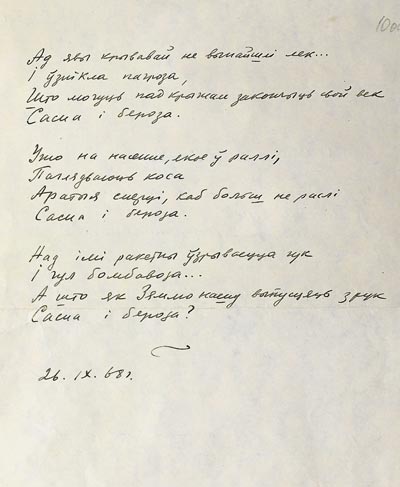 Ад явы крывавай не выйшлі лек...
І ўзнікла пагроза,
Што могуць пад крыжам закончыць свой век
Сасна і бяроза.
Ужо на насенне, якое ў раллі,
Паглядваюць коса
Аратыя смерці, каб больш не раслі
Сасна і бяроза.
Над імі ракетны ўзрываецца гук
І гул бомбавоза...
А што як Зямлю нашу выпусцяць з рук
Сасна і бяроза?
26. IX. 68 г.